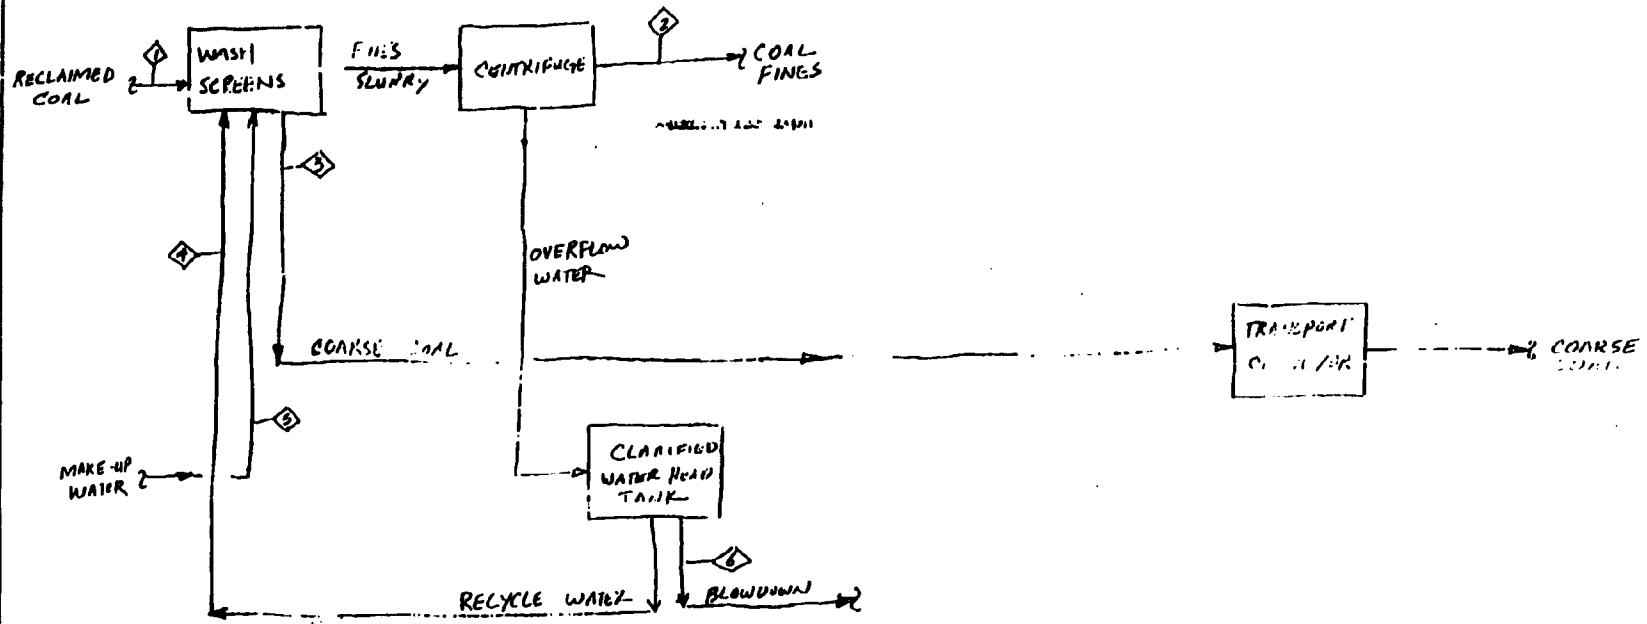 1
WASH
SCREENS
RECLAIMED
COAL
FINES
SLURRY
CENTRIFUGE
2
COAL
FINES
3
4
OVERFLOW
WATER
COARSE COAL
TRANSPORT
COARSE
5
MAKE-UP
WATER
CLARIFIED
WATER HEAD
TANK
6
RECYCLE WATER
BLOWDOWN